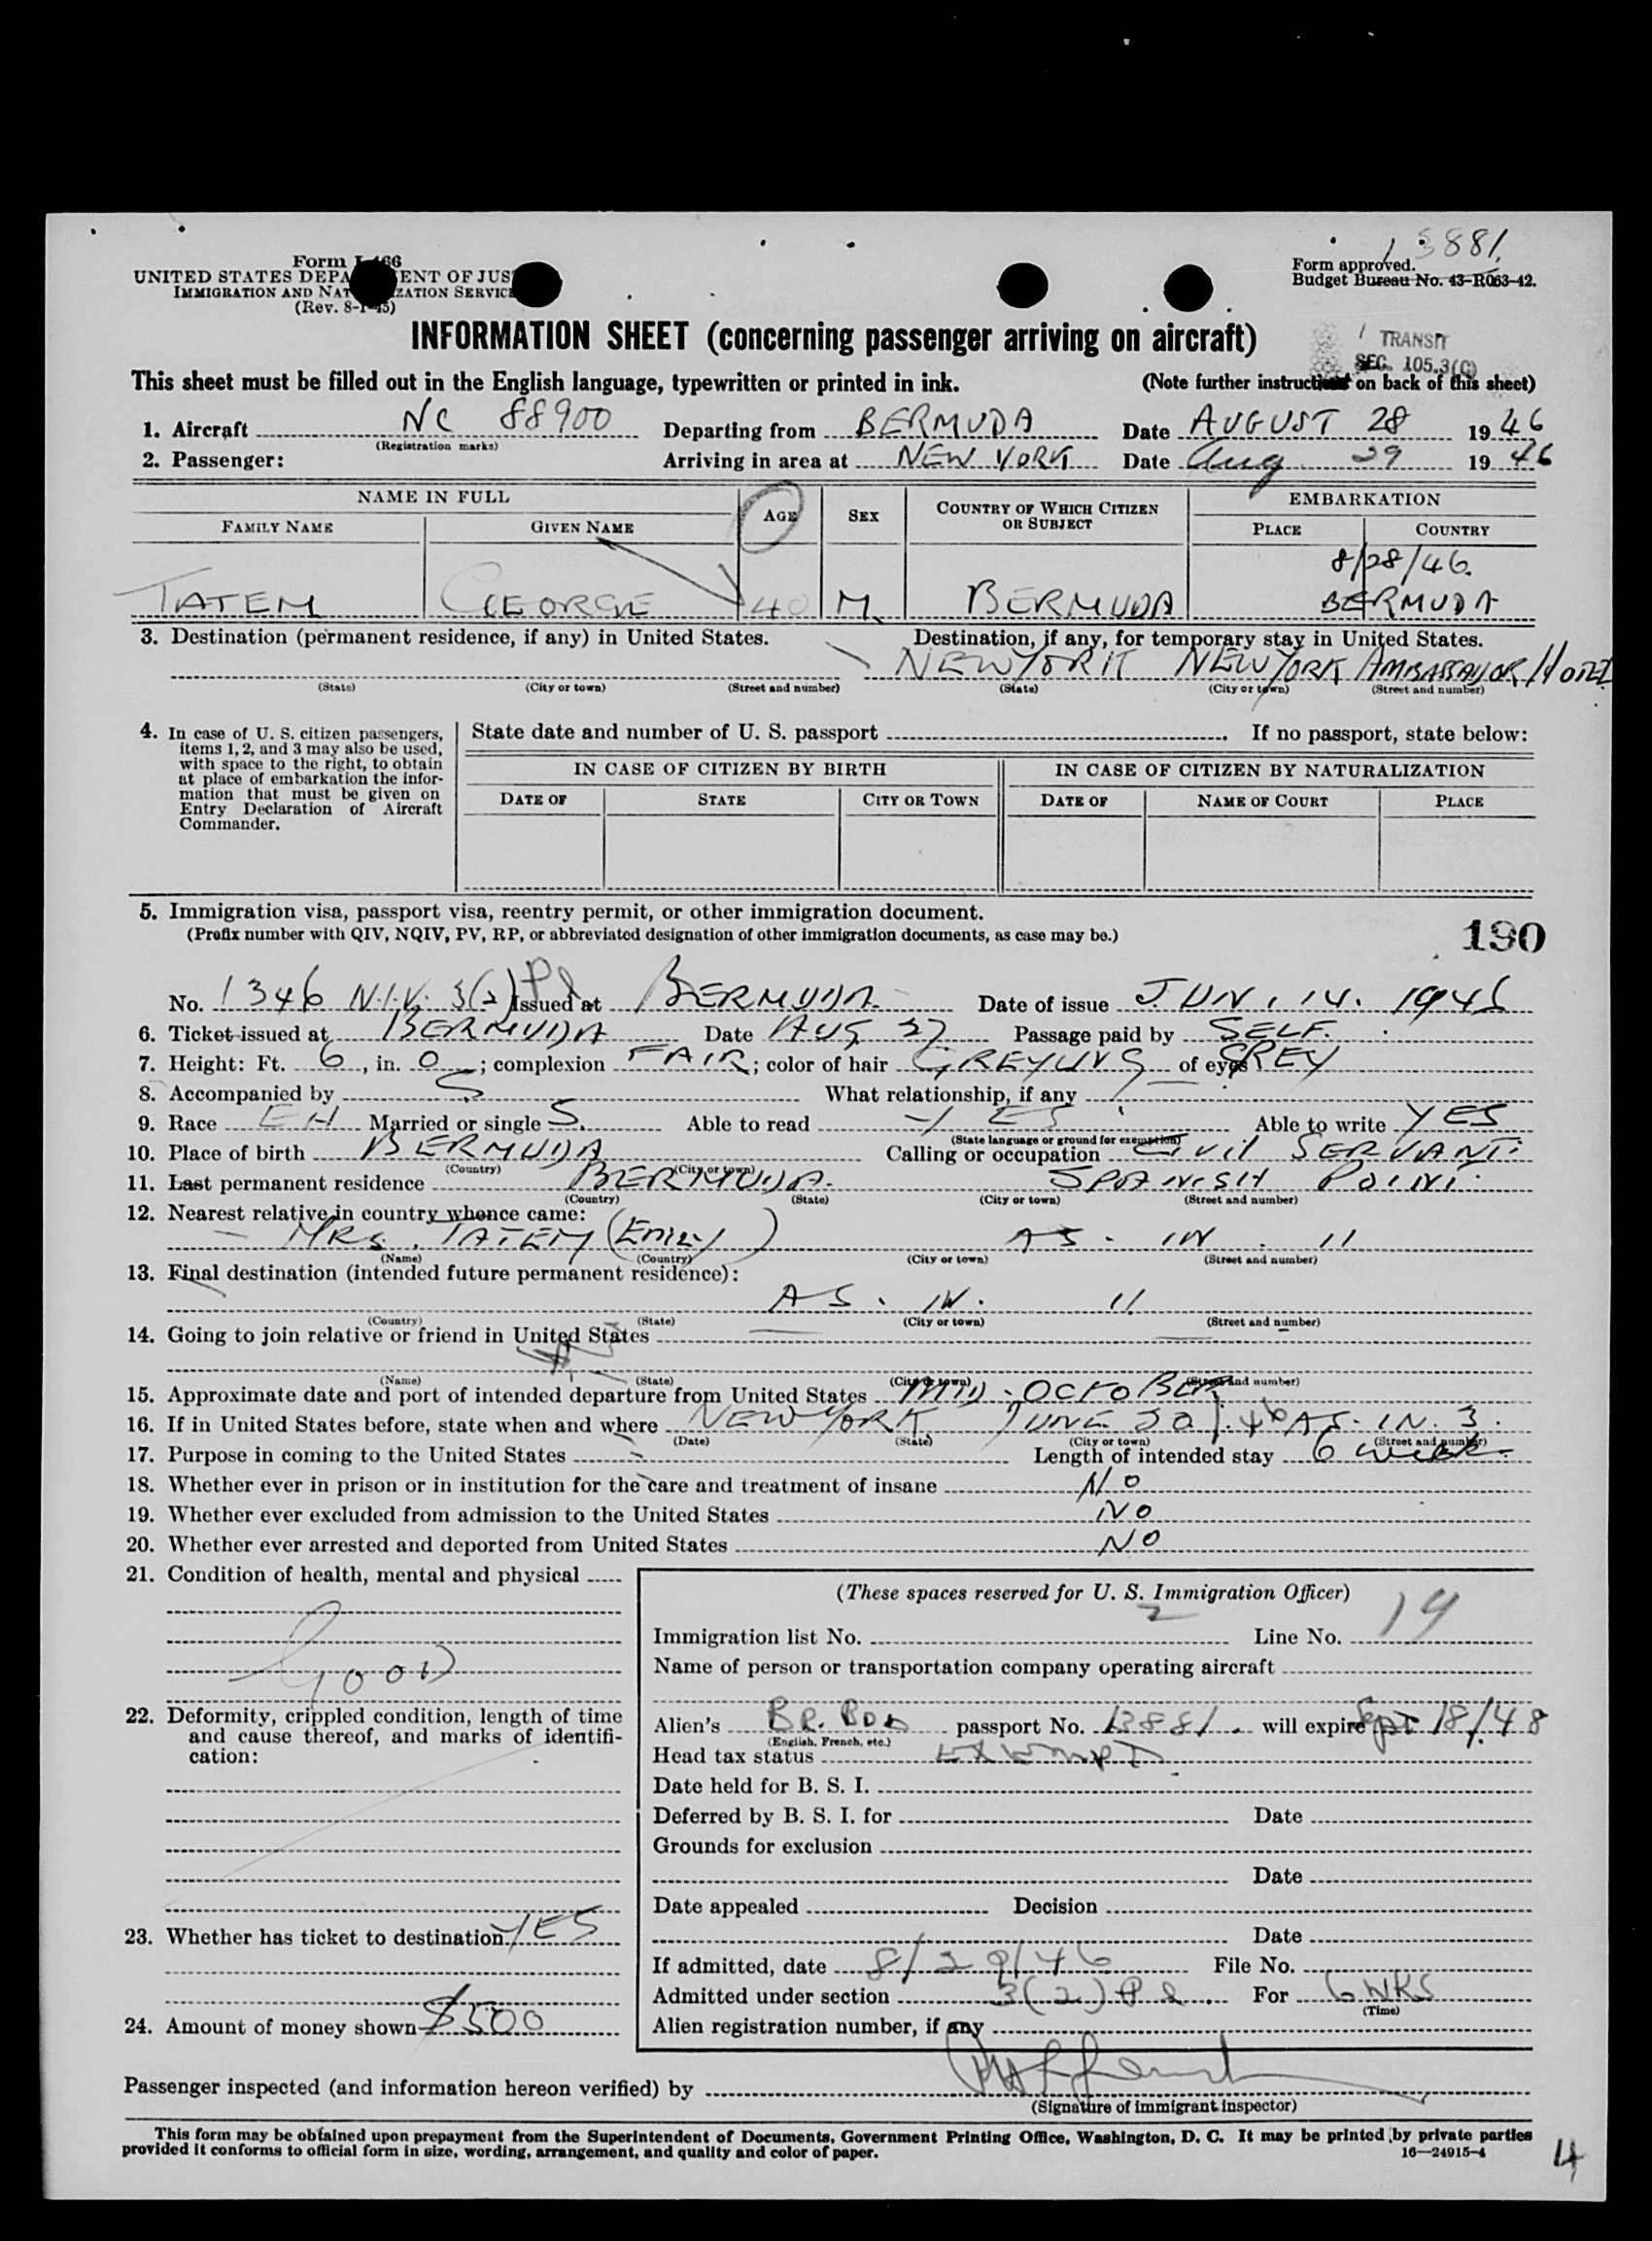 13881.
Form I-466
UNITED STATES DEPARTMENT OF JUSTICE
IMMIGRATION AND NATURALIZATION SERVICE
(Rev. 8-1-45)
Form approved.
Budget Bureau No. 43-R063-42.
INFORMATION SHEET (concerning passenger arriving on aircraft)
TRANSIT
SEC. 105.3(C)
This sheet must be filled out in the English language, typewritten or printed in ink. (Note further instructions on back of this sheet)
1. Aircraft NC 88900 Departing from BERMUDA Date AUGUST 28 1946
(Registration marks)
2. Passenger: Arriving in area at NEW YORK Date Aug 29 1946
NAME IN FULL AGE SEX COUNTRY OF WHICH CITIZEN OR SUBJECT EMBARKATION
FAMILY NAME GIVEN NAME PLACE COUNTRY
8/28/46.
TATEM GEORGE 40 M BERMUDA BERMUDA
3. Destination (permanent residence, if any) in United States. Destination, if any, for temporary stay in United States.
NEW YORK NEW YORK AMBASSADOR HOTEL
(State) (City or town) (Street and number) (State) (City or town) (Street and number)
4. In case of U. S. citizen passengers, items 1, 2, and 3 may also be used, with space to the right, to obtain at place of embarkation the information that must be given on Entry Declaration of Aircraft Commander.
State date and number of U. S. passport. If no passport, state below:
IN CASE OF CITIZEN BY BIRTH IN CASE OF CITIZEN BY NATURALIZATION
DATE OF STATE CITY OR TOWN DATE OF NAME OF COURT PLACE
5. Immigration visa, passport visa, reentry permit, or other immigration document.
(Prefix number with QIV, NQIV, PV, RP, or abbreviated designation of other immigration documents, as case may be.)
190
No. 1346 N.I.V. 3(2) Pl Issued at BERMUDA. Date of issue JUN. 14. 1946
6. Ticket issued at BERMUDA Date AUG 27 Passage paid by SELF.
7. Height: Ft. 6, in. 0; complexion FAIR; color of hair GREYING of eyes GREY
8. Accompanied by What relationship, if any
9. Race EH Married or single S. Able to read YES Able to write YES
(State language or ground for exemption)
10. Place of birth BERMUDA Calling or occupation CIVIL SERVANT.
(Country) (City or town)
11. Last permanent residence BERMUDA. SPANISH POINT.
(Country) (State) (City or town) (Street and number)
12. Nearest relative in country whence came:
MRS. TATEM (EMILY) AS. IN. 11
(Name) (Country) (City or town) (Street and number)
13. Final destination (intended future permanent residence):
AS. IN. 11
(Country) (State) (City or town) (Street and number)
14. Going to join relative or friend in United States
(Name) (State) (City or town) (Street and number)
15. Approximate date and port of intended departure from United States MID-OCTOBER
16. If in United States before, state when and where NEW YORK JUNE 20/46 AS. IN. 3.
(Date) (State) (City or town) (Street and number)
17. Purpose in coming to the United States Length of intended stay 6 weeks.
18. Whether ever in prison or in institution for the care and treatment of insane NO
19. Whether ever excluded from admission to the United States NO
20. Whether ever arrested and deported from United States NO
21. Condition of health, mental and physical
GOOD
22. Deformity, crippled condition, length of time and cause thereof, and marks of identification:
23. Whether has ticket to destination YES
24. Amount of money shown $500
(These spaces reserved for U. S. Immigration Officer)
Immigration list No. 2 Line No. 14
Name of person or transportation company operating aircraft
Alien's BR. BDA passport No. 13881. will expire Sept 18/48
(English, French, etc.)
Head tax status EXEMPT
Date held for B. S. I.
Deferred by B. S. I. for Date
Grounds for exclusion
Date
Date appealed Decision
Date
If admitted, date 8/29/46 File No.
Admitted under section 3(2) Pl For 6 WKS
(Time)
Alien registration number, if any
Passenger inspected (and information hereon verified) by
(Signature of immigrant inspector)
This form may be obtained upon prepayment from the Superintendent of Documents, Government Printing Office, Washington, D. C. It may be printed by private parties
provided it conforms to official form in size, wording, arrangement, and quality and color of paper. 16—24915-4
4